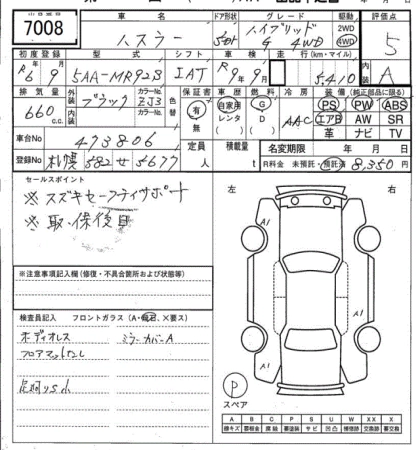 7008
車名
ドア形状
グレード
駆動
評価点
ハスラー
5D
ハイブリッド
G 4WD
2WD
4WD
5
初度登録
型式
シフト
車検
走行(km・マイル)
内装
R6年9月
5AA-MR92S
IAT
R9年9月
5,410
A
排気量
外装
カラーNo.
色替
自家用
レンタ
燃料
G
D
冷房
装備(純正部品に限る)
660 c.c.
ブラック
ZJ3
有
無
車歴
AAC
PS
PW
ABS
エアB
AW
SR
革
ナビ
TV
内装
カラーNo.
車台No
473806
定員
人
積載量
t
名変期限
年 月 日
登録No
札幌 582 せ 5677
R料金 未預託・預託済
8,350円
セールスポイント
※スズキセーフティサポート
※取・保後日
左
右
A1
A1
A1
※注意事項記入欄(修復・不具合箇所および状態等)
検査員記入
フロントガラス(A・飛石、×要ス)
ボディオレス
ミラーカバーA
フロアマットなし
P
スペア
A
B
C
P
S
U
W
X
XX
線キズ
サビ
凹凸
補修跡
要交換
交換済